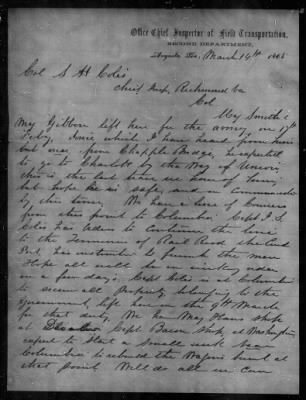 Office Chief Inspector of Field Transportation,
SECOND DEPARTMENT,
Augusta Ga, March 14th 1865
Col S H Cole
Chief Insp Richmond Va
Col
My Smith &
May Gibbon left here for the army on 17th
Feby, since which I have heard from him
but once, from Chapples Bridge, he expected
to go to Charlotte by the Way of Union,
this is the last time we have of them,
but hope he is safe, and in communication
by this time, We have a line of Couriers
from this point to Columbia Capt J. L.
Coles has orders to continue the line
to the Terminus of Rail Road the
is instructed to furnish the men
Hope all will be in working order
in a few days, Capt Coles is at Columbia
to secure all Property belonging to the
Government, left here on the 9th March
for that duty, We have May Hans shop
at Capt Bacon Shop at Washington
expect to Start a small work shop
Columbia to rebuild the Wagons burnt at
that point Will do all we can